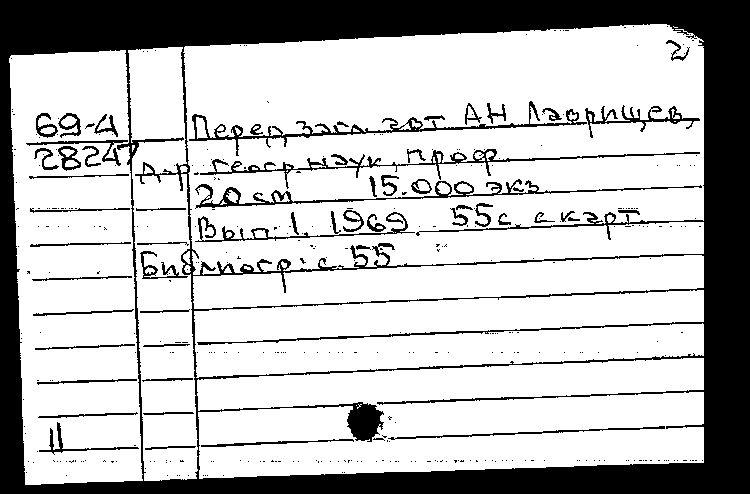 2
69-4 Перед загл. авт. А.Н. Лаврищев,
28247 д-р геогр. наук, проф.
20 см 15.000 экз.
Вып. 1. 1969. 55 с. с карт.
Библиогр.: с. 55.
11